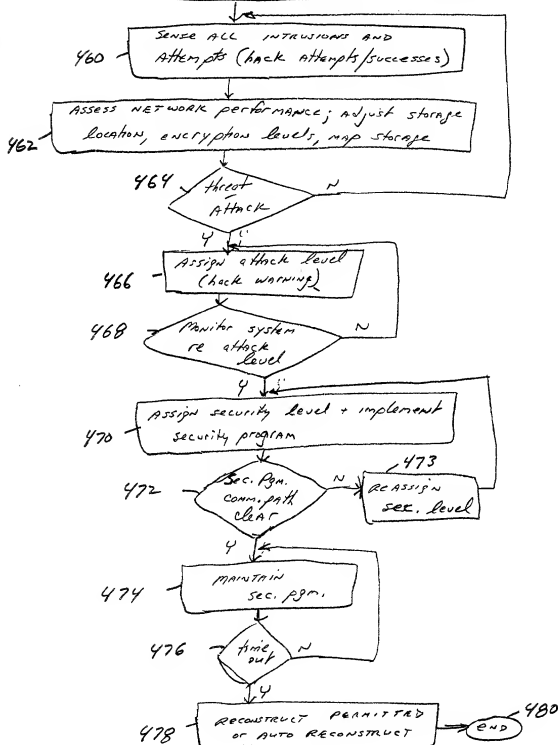 460
SENSE ALL INTRUSIONS AND
Attempts (hack Attempts/successes)
462
ASSESS NETWORK performance; adjust storage
location, encryption levels, map storage
464
threat
Attack
N
Y
466
Assign attack level
(hack warning)
468
Monitor system
re attack
level
N
Y
470
Assign security level + implement
security program
472
Sec. Pgm.
comm. path
clear
N
473
REASSIGN
sec. level
Y
474
MAINTAIN
sec. pgm.
476
time
out
N
Y
478
RECONSTRUCT PERMITTED
or AUTO RECONSTRUCT
END
480